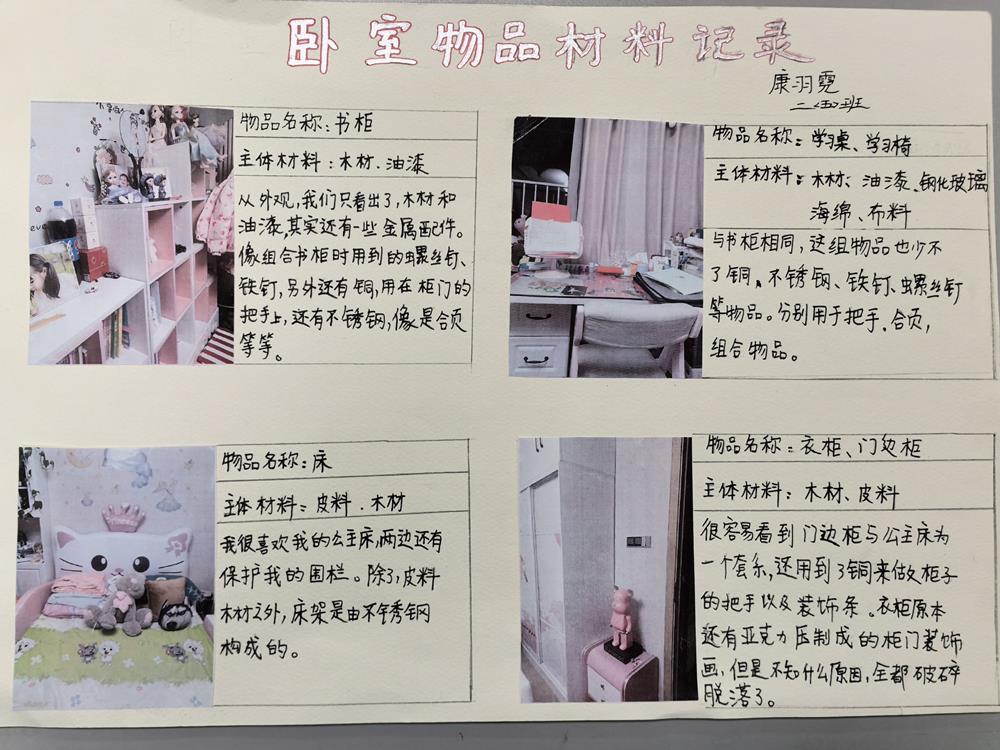 卧室物品材料记录
康羽霓
二(五)班
物品名称:书柜
主体材料:木材、油漆
从外观,我们只看出了,木材和
油漆,其实还有一些金属配件。
像组合书柜时用到的螺丝钉、
铁钉,另外还有铜,用在柜门的
把手上,还有不锈钢,像是合页
等等。
物品名称:学习桌、学习椅
主体材料:木材、油漆、钢化玻璃
海绵、布料
与书柜相同,这组物品也少不
了铜、不锈钢、铁钉、螺丝钉
等物品。分别用于把手、合页,
组合物品。
物品名称:床
主体材料:皮料、木材
我很喜欢我的公主床,两边还有
保护我的围栏。除了,皮料
木材之外,床架是由不锈钢
构成的。
物品名称:衣柜、门边柜
主体材料:木材、皮料
很容易看到门边柜与公主床为
一个套系,还用到了铜来做柜子
的把手以及装饰条。衣柜原本
还有亚克力压制成的柜门装饰
画,但是不知什么原因,全都破碎
脱落了。